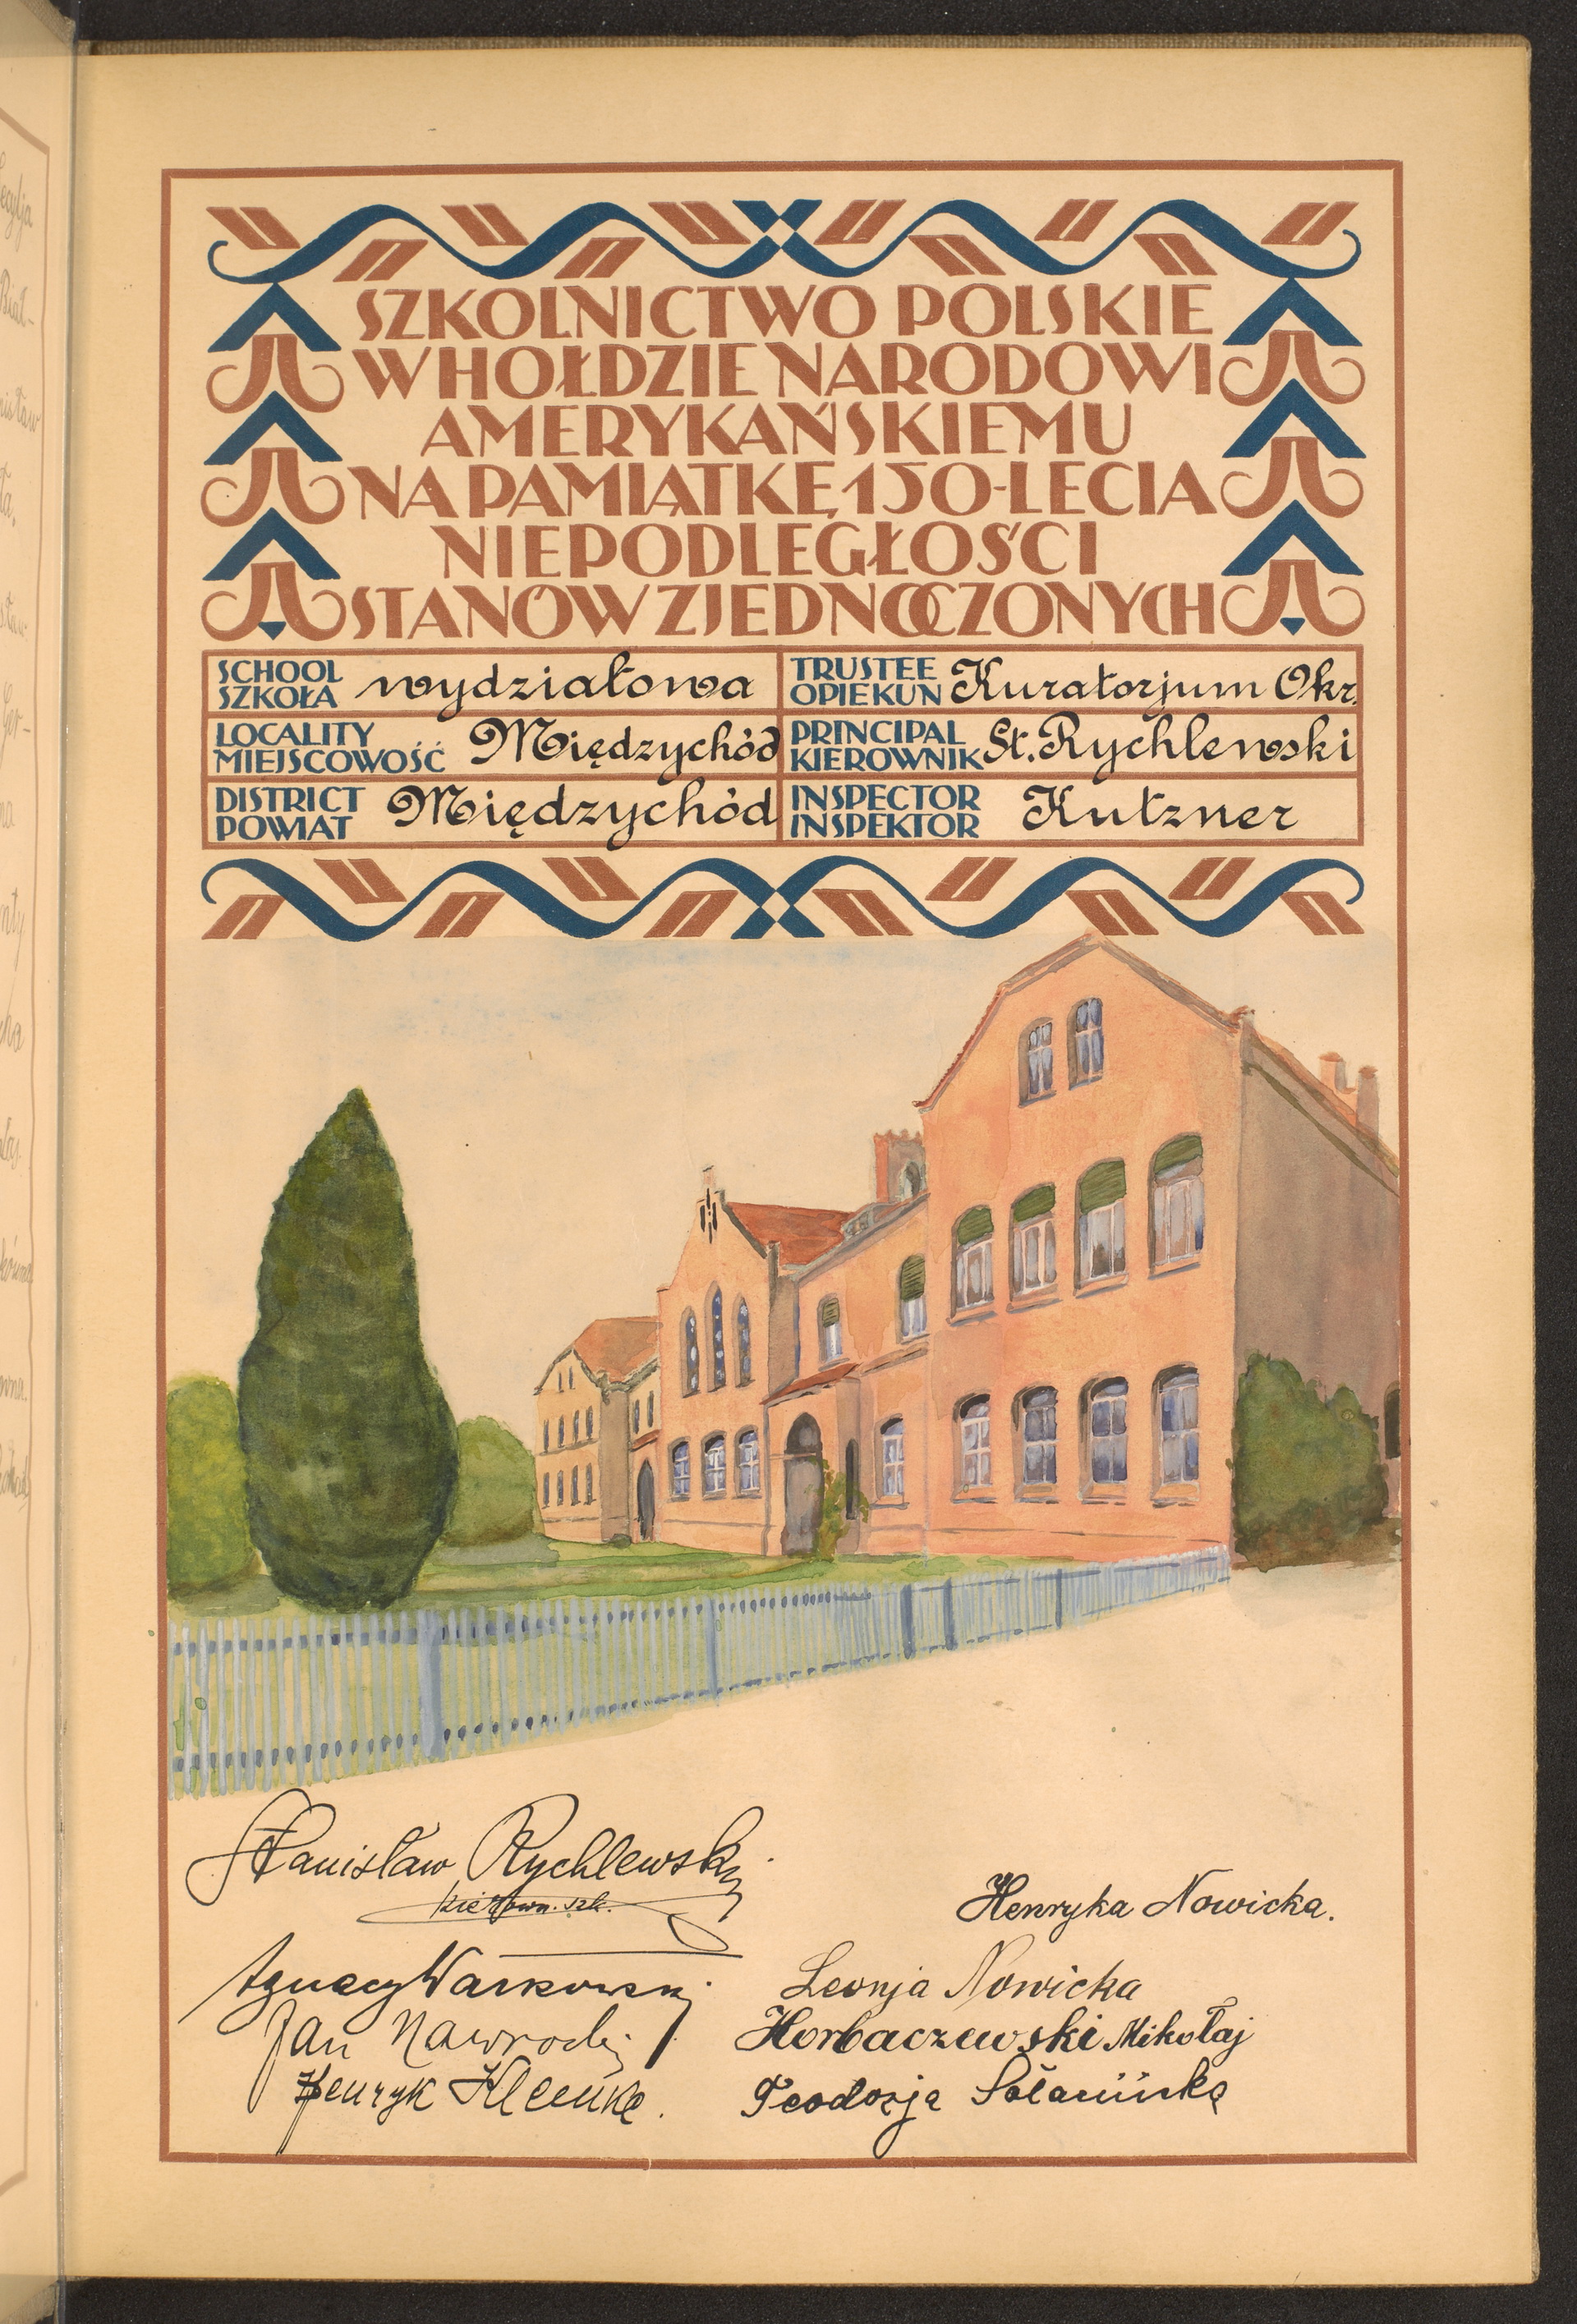 SZKOLNICTWO POLSKIE
W HOŁDZIE NARODOWI
AMERYKAŃSKIEMU
NA PAMIĄTKĘ 150-LECIA
NIEPODLEGŁOŚCI
STANÓW ZJEDNOCZONYCH
SCHOOL
SZKOŁA wydziałowa
TRUSTEE
OPIEKUN Kuratorjum Okr.
LOCALITY
MIEJSCOWOŚĆ Międzychód
PRINCIPAL
KIEROWNIK St. Rychlewski
DISTRICT
POWIAT Międzychód
INSPECTOR
INSPEKTOR Kutzner
Stanisław Rychlewski
kierown. szk.
Henryka Nowicka.
Ignacy Warkowski
Leonja Nowicka
Jan Nawrocki
Horbaczewski Mikołaj
Henryk Klemke.
Teodozja